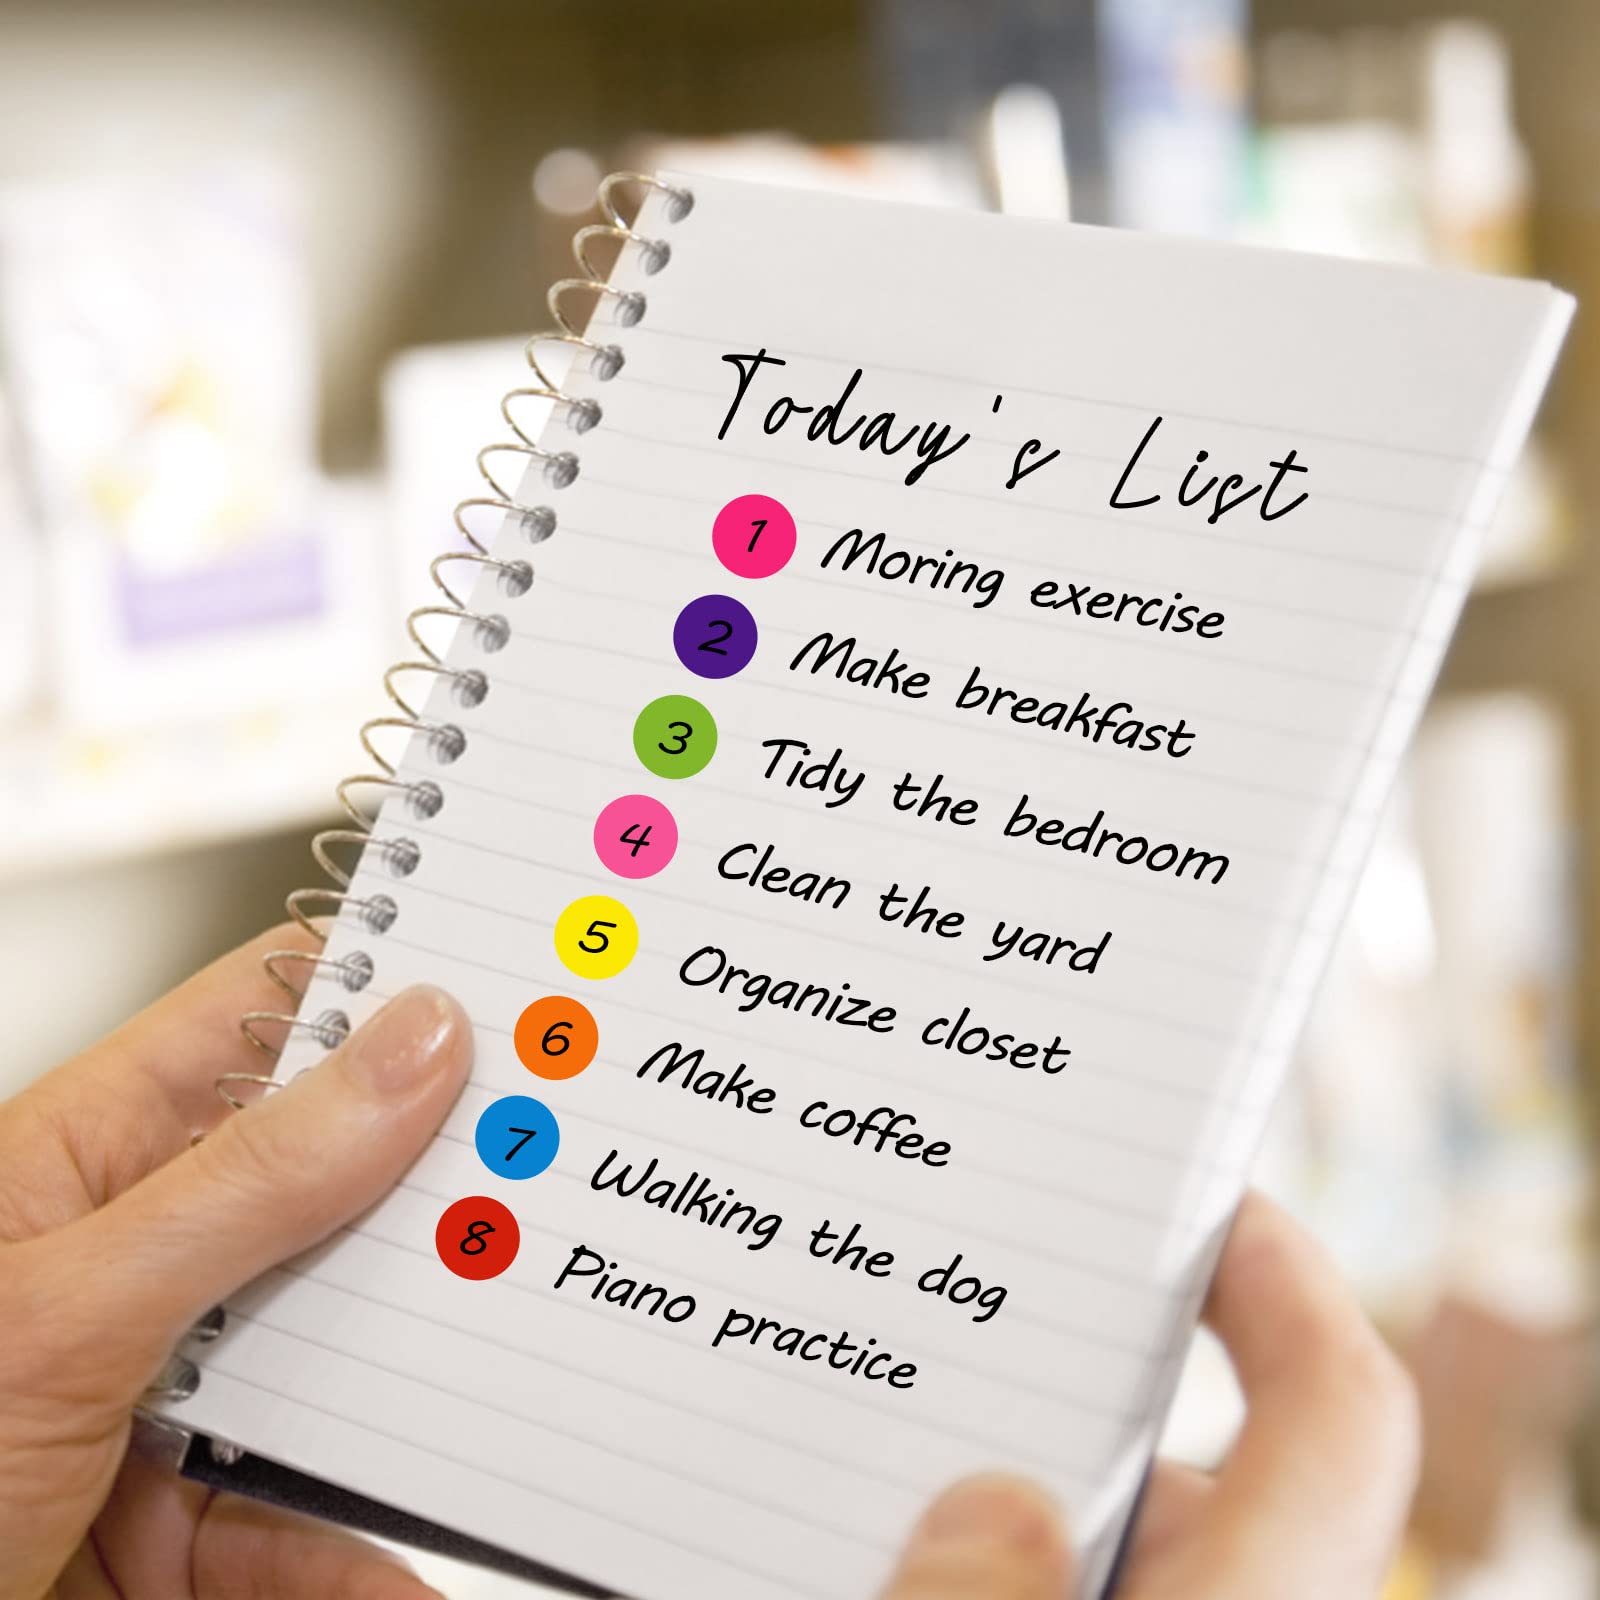 Today's List
1 Moring exercise
2 Make breakfast
3 Tidy the bedroom
4 Clean the yard
5 Organize closet
6 Make coffee
7 Walking the dog
8 Piano practice